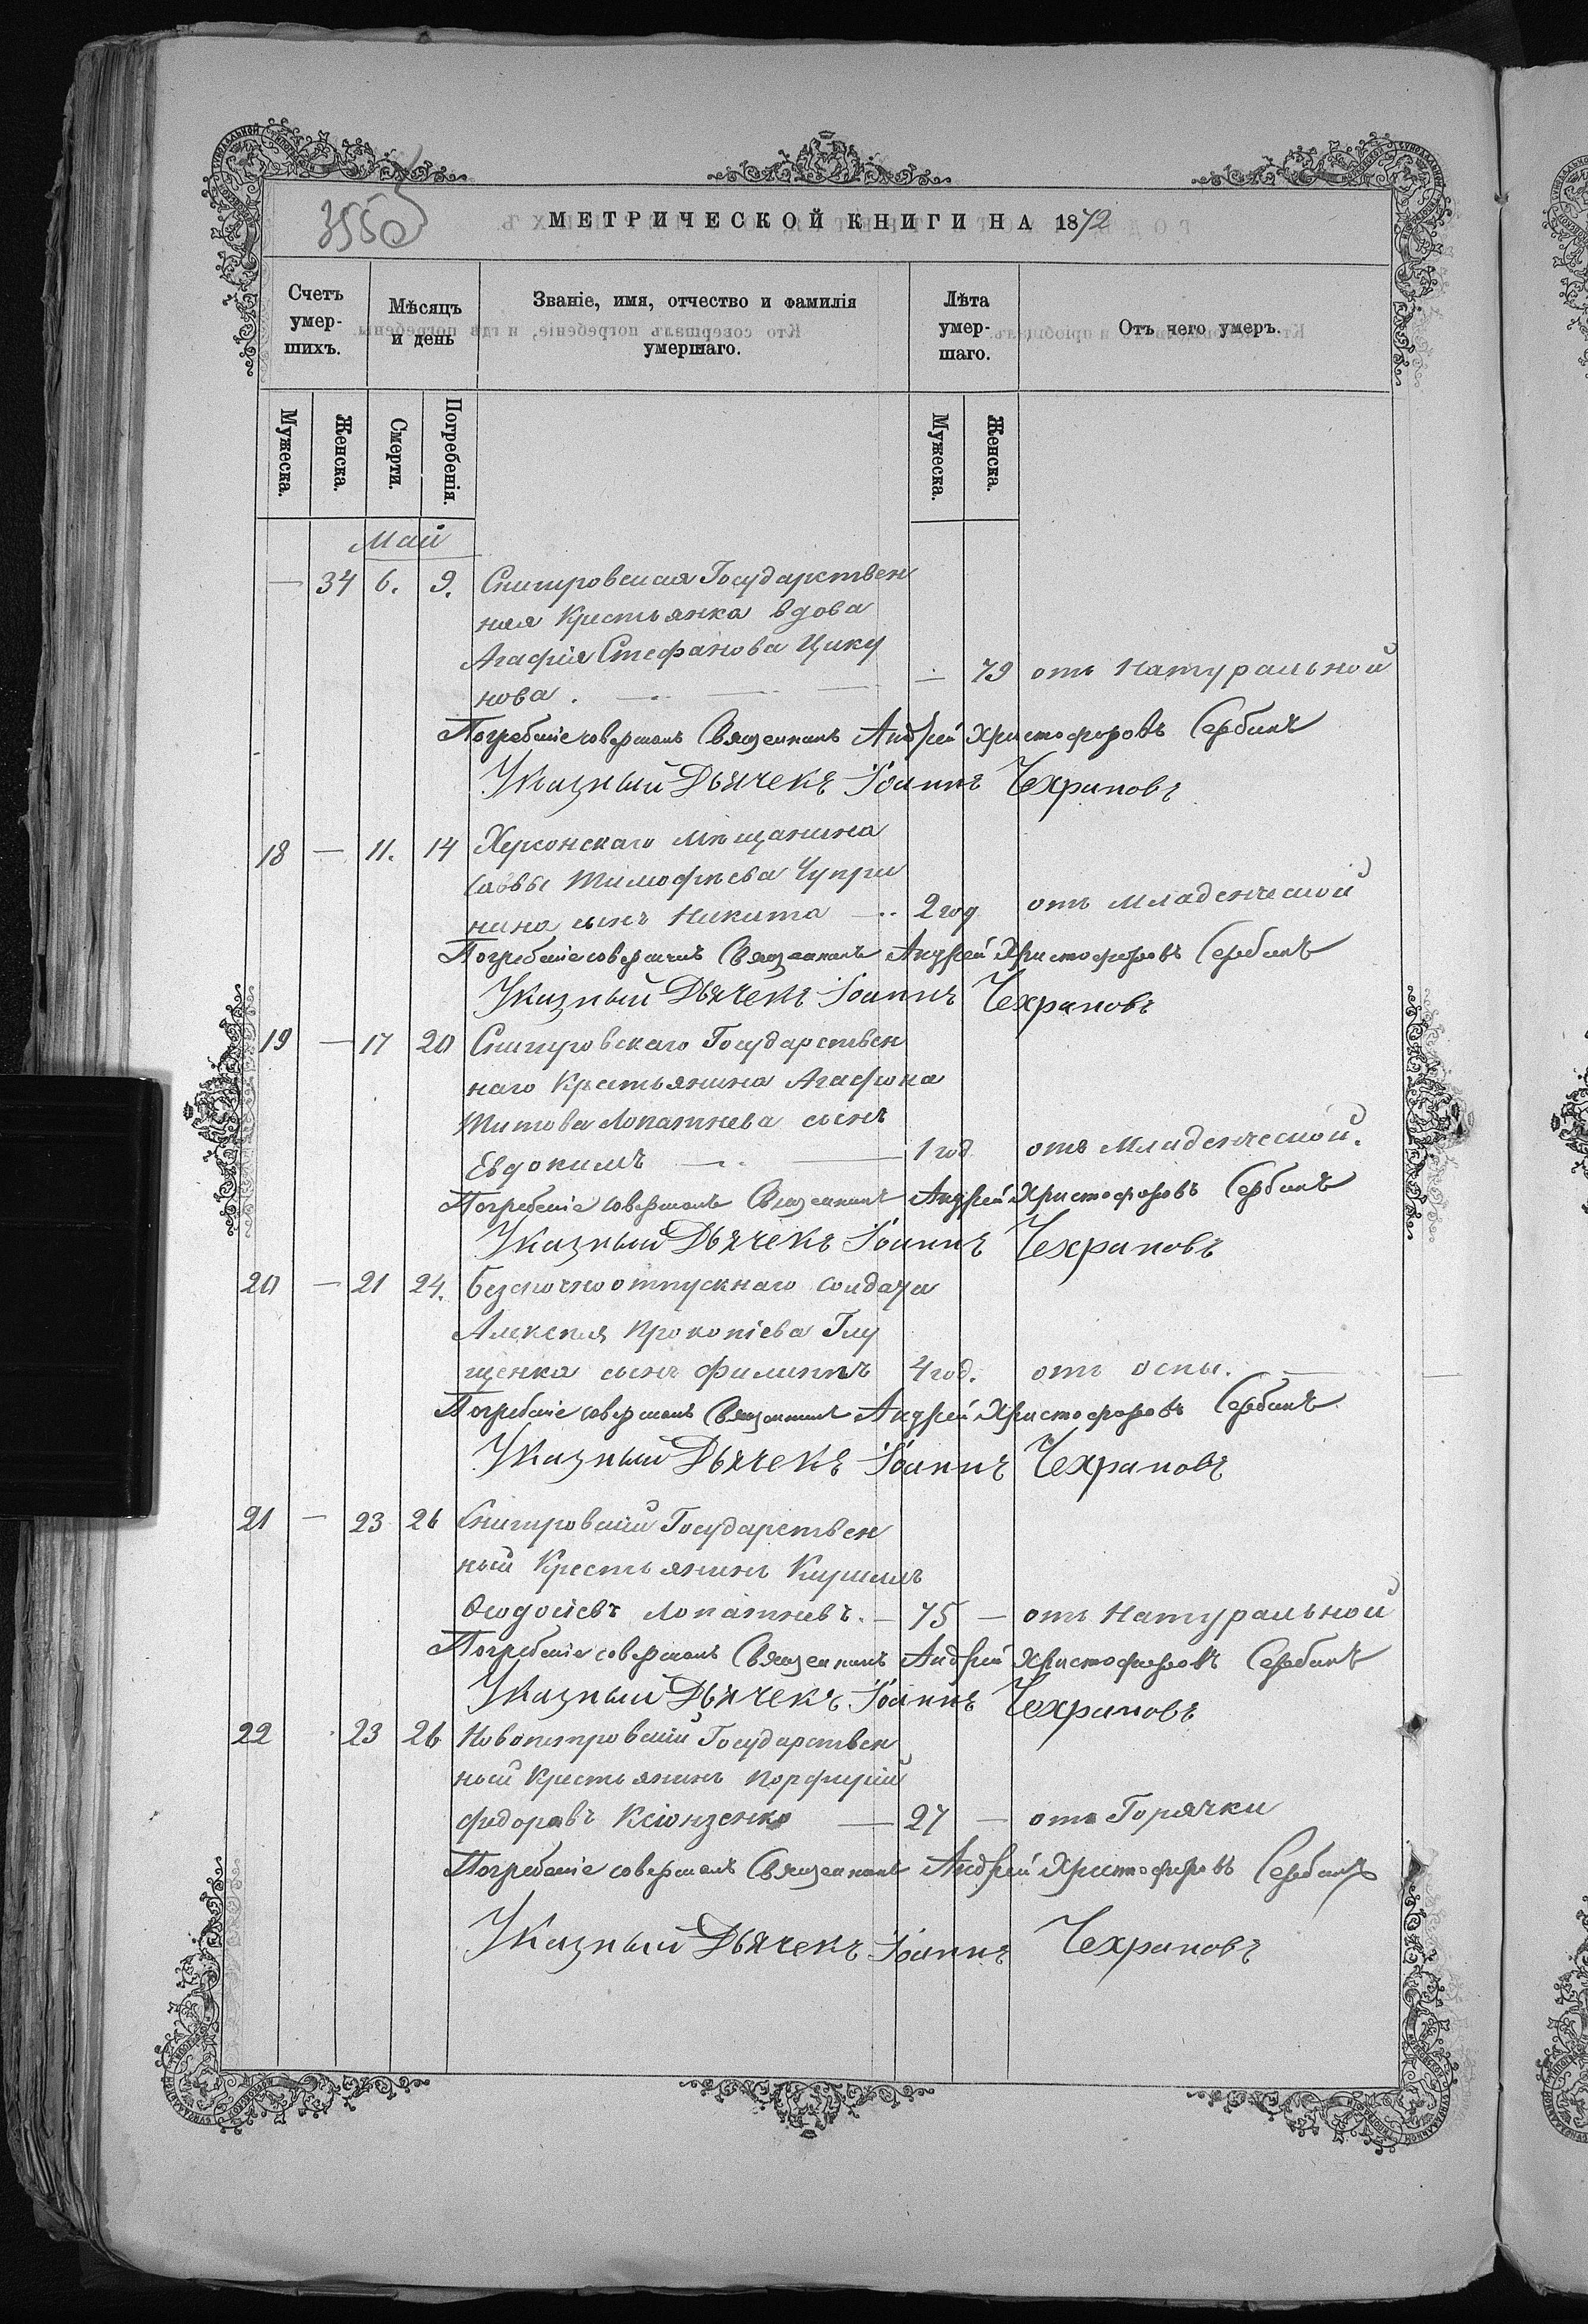 355об
МЕТРИЧЕСКОЙ КНИГИ НА 1872
Счетъ умер-шихъ.
Мѣсяцъ и день
Званіе, имя, отчество и фамилія умершаго.
Лѣта умер-шаго.
Отъ чего умеръ.
Мужеска. Женска. Смерти. Погребенія. Мужеска. Женска.
Май
— 34 6. 9. Снигировская Государствен
ная Крестьянка вдова
Агафія Стефанова Цику
нова . — — — — 79 отъ Натуральной
Погребеніе совершалъ Священникъ Андрей Христофоровъ Сербинъ
Указный Дьячекъ Іоаннъ Чехрановъ
18 — 11. 14 Херсонскаго Мѣщанина
Саввы Тимофѣева Чупри
нина сынъ Никита — .. 2 год отъ Младенческой
Погребеніе совершалъ Священникъ Андрей Христофоровъ Сербинъ
Указный Дьячекъ Іоаннъ Чехрановъ
19 — 17 20 Снигировскаго Государствен
наго Крестьянина Агафона
Титова Лопатнева сынъ
Евдокимъ — .. — 1 год отъ Младенческой.
Погребеніе совершалъ Священникъ Андрей Христофоровъ Сербинъ
Указный Дьячекъ Іоаннъ Чехрановъ
20 — 21 24. Безсрочноотпускнаго Солдата
Алексѣя Прокопіева Глу
щенка сынъ Филиппъ 4 год. отъ оспы.
Погребеніе совершалъ Священникъ Андрей Христофоровъ Сербинъ
Указный Дьячекъ Іоаннъ Чехрановъ
21 — 23 26 Снигировскій Государствен
ный Крестьянинъ Кирилъ
Ѳеодосіевъ Лопатневъ. — 75 — отъ Натуральной
Погребеніе совершалъ Священникъ Андрей Христофоровъ Сербинъ
Указный Дьячекъ Іоаннъ Чехрановъ
22 23 26 Новопетровскій Государствен
ный Крестьянинъ Порфирій
Федоровъ Ксіонзенко — 27 — отъ Горячки
Погребеніе совершалъ Священникъ Андрей Христофоровъ Сербинъ
Указный Дьячекъ Іоаннъ Чехрановъ